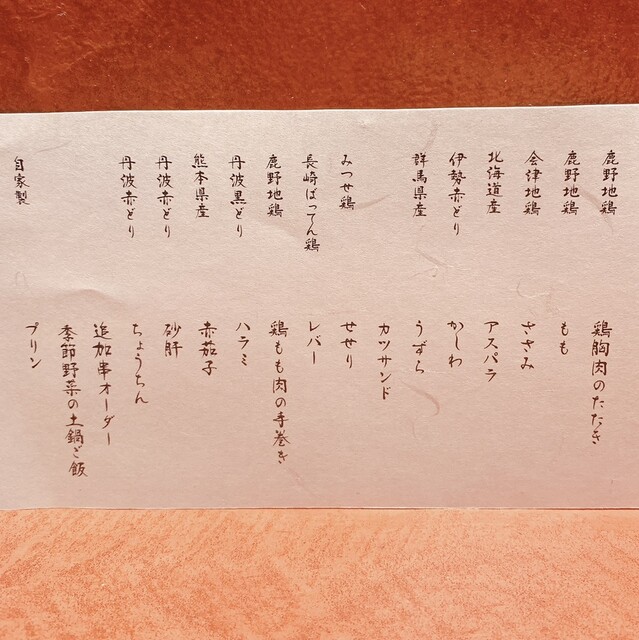 鹿野地鶏 鶏胸肉のたたき
鹿野地鶏 もも
会津地鶏 ささみ
北海道産 アスパラ
伊勢赤どり かしわ
群馬県産 うずら
カツサンド
みつせ鶏 せせり
長崎ばってん鶏 レバー
鹿野地鶏 鶏もも肉の手巻き
丹波黒どり ハラミ
熊本県産 赤茄子
丹波赤どり 砂肝
丹波赤どり ちょうちん
追加串オーダー
季節野菜の土鍋ご飯
自家製 プリン